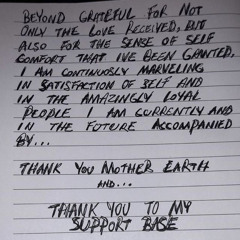 BEYOND GRATEFUL FOR NOT
ONLY THE LOVE RECEIVED, BUT
ALSO FOR THE SENSE OF SELF
COMFORT THAT I'VE BEEN GRANTED,
I AM CONTINUOUSLY MARVELING
IN SATISFACTION OF SELF AND
IN THE AMAZINGLY LOYAL
PEOPLE I AM CURRENTLY AND
IN THE FUTURE ACCOMPANIED
BY...
THANK YOU MOTHER EARTH
AND...
THANK YOU TO MY
SUPPORT BASE